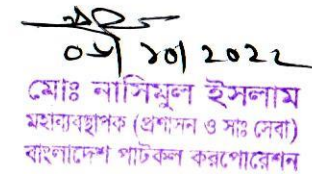 ০৬/১০/২০২২
মোঃ নাসিমুল ইসলাম
মহাব্যবস্থাপক (প্রশাসন ও সাঃ সেবা)
বাংলাদেশ পাটকল করপোরেশন